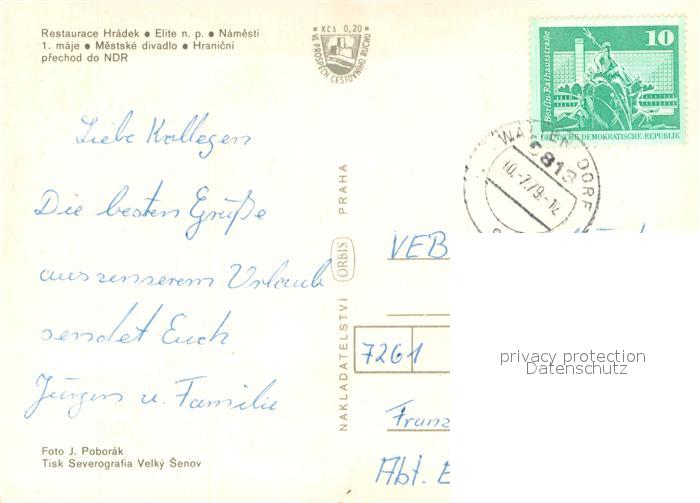 Restaurace Hrádek ● Elite n. p. ● Náměstí
1. máje ● Městské divadlo ● Hraniční
přechod do NDR
KČS 0,20
VE PROSPĚCH CESTOVNÍHO RUCHU
10
Berlin-Rathausstraße
DEUTSCHE DEMOKRATISCHE REPUBLIK
8813
10.-7.79.-12
Liebe Kollegen
Die besten Grüße
aus unserem Urlaub
sendet Euch
Jürgen u. Familie
NAKLADATELSTVÍ ORBIS PRAHA
VEB
7261
Franz
Abt. E
privacy protection
Datenschutz
Foto J. Poborák
Tisk Severografia Velký Šenov